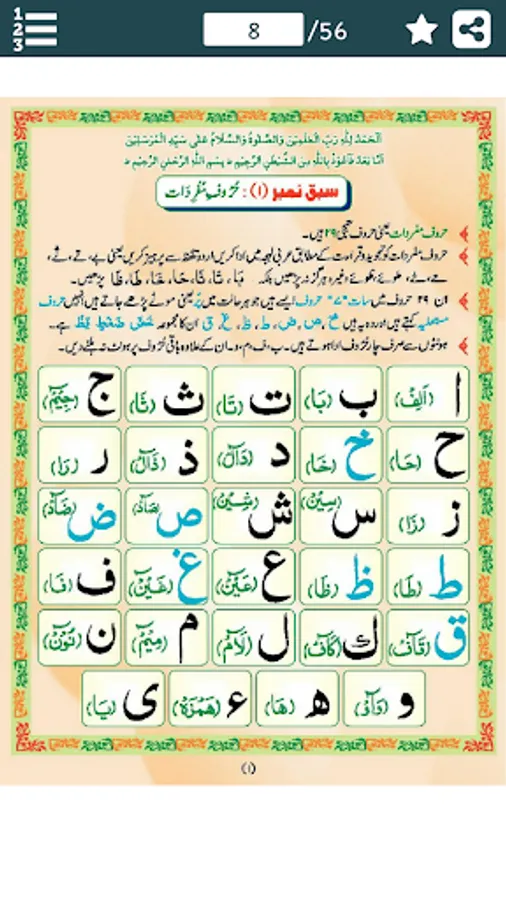 1
2
3
8 /56
اَلْحَمْدُ لِلّٰهِ رَبِّ الْعٰلَمِیْنَ وَالصَّلٰوةُ وَالسَّلَامُ عَلٰی سَیِّدِ الْمُرْسَلِیْنَ
اَمَّا بَعْدُ فَاَعُوْذُ بِاللّٰهِ مِنَ الشَّیْطٰنِ الرَّجِیْمِ ؕ بِسْمِ اللّٰهِ الرَّحْمٰنِ الرَّحِیْمِ ؕ
سبق نمبر (۱) : حُرُوفِ مُفْرِدَات
حروف مفردات یعنی حروف تہجی ۲۹ ہیں۔
حروف مفردات کو تجوید و قراءت کے مطابق عربی لہجہ میں ادا کریں اردو تلفظ سے پرہیز کریں یعنی بے، تے، ثے،
حے، طوئے، ظوئے وغیرہ ہرگز نہ پڑھیں بلکہ بَا، تَا، ثَا، حَا، خَا، طَا، ظَا پڑھیں۔
ان ۲۹ حروف میں سات "۷" حروف ایسے ہیں جو ہر حالت میں پُر یعنی موٹے پڑھے جاتے ہیں انہیں حروف
مستعلیہ کہتے ہیں اور وہ یہ ہیں خ، ص، ض، ط، ظ، غ، ق ان کا مجموعہ خُصَّ ضَغْطٍ قِظْ ہے۔
ہونٹوں سے صرف چار حروف ادا ہوتے ہیں۔ ب، ف، م، و۔ ان کے علاوہ باقی حُرُوف پر ہونٹ نہ ہلنے دیں۔
ا (اَلِفْ) ب (بَا) ت (تَا) ث (ثَا) ج (جِیْمْ)
ح (حَا) خ (خَا) د (دَالْ) ذ (ذَالْ) ر (رَا)
ز (زَا) س (سِیْنْ) ش (شِیْنْ) ص (صَادْ) ض (ضَادْ)
ط (طَا) ظ (ظَا) ع (عَیْنْ) غ (غَیْنْ) ف (فَا)
ق (قَافْ) ك (كَافْ) ل (لَامْ) م (مِیْمْ) ن (نُوْنْ)
و (وَاوْ) ھ (ھَا) ء (ھَمْزَهْ) ی (یَا)
(۱)